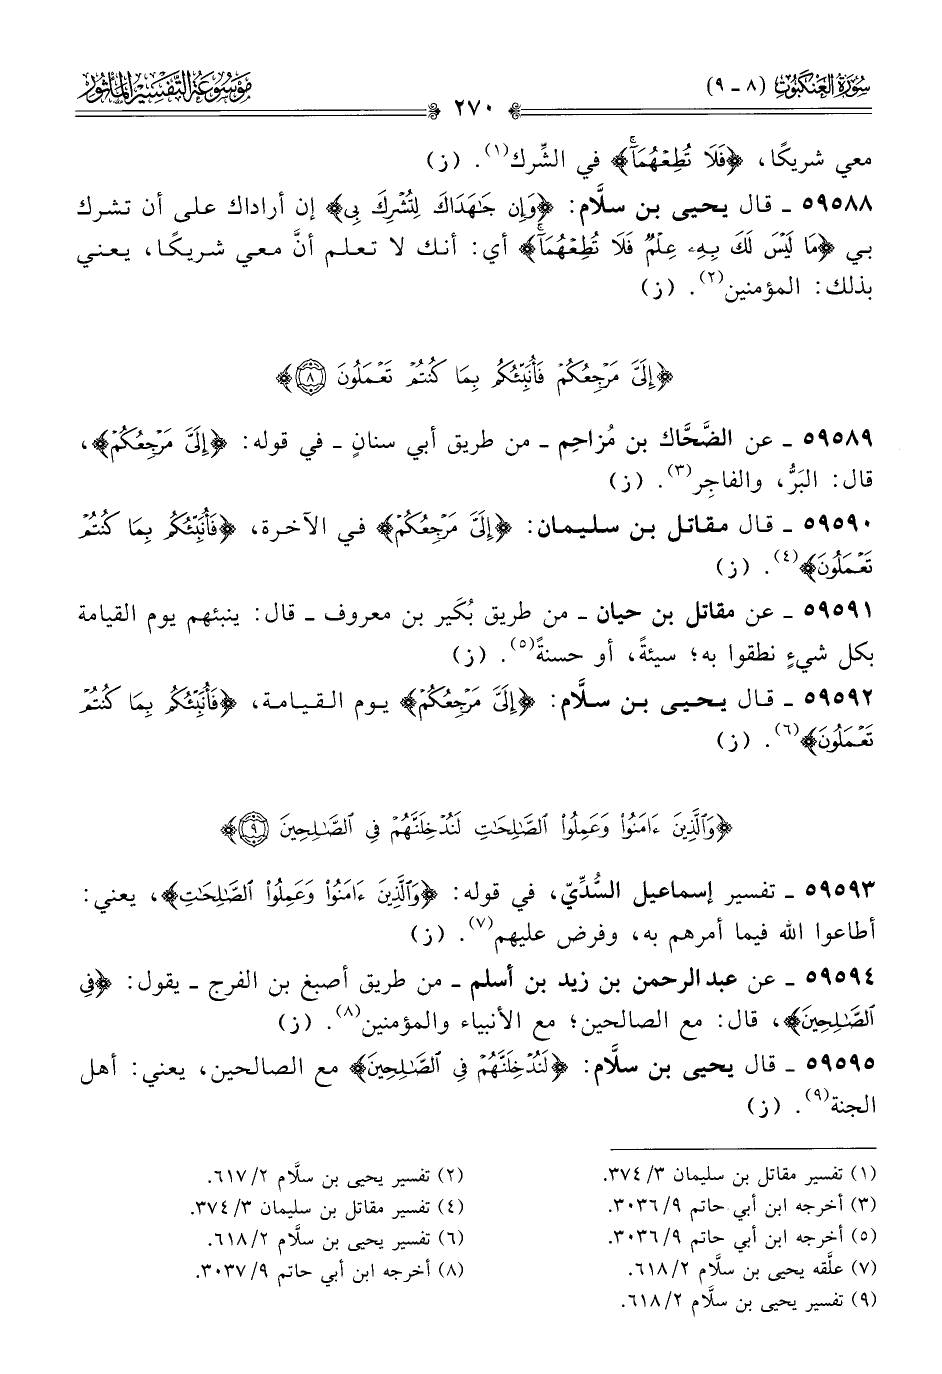 سُورَةُ العَنْكَبُوتِ (٨ - ٩)
٢٧٠
مَوْسُوعَةُ التَّفْسِيرِ المَأْثُورِ
معي شريكًا، ﴿فَلَا تُطِعْهُمَآ﴾ في الشِّرك(١). (ز)
٥٩٥٨٨ ـ قال يحيى بن سلَّام: ﴿وَإِن جَٰهَدَاكَ لِتُشْرِكَ بِى﴾ إن أراداك على أن تشرك
بي ﴿مَا لَيْسَ لَكَ بِهِۦ عِلْمٌ فَلَا تُطِعْهُمَآ﴾ أي: أنك لا تعلم أنَّ معي شريكًا، يعني
بذلك: المؤمنين(٢). (ز)
﴿إِلَىَّ مَرْجِعُكُمْ فَأُنَبِّئُكُم بِمَا كُنتُمْ تَعْمَلُونَ ٨﴾
٥٩٥٨٩ ـ عن الضَّحَّاك بن مُزاحِم ـ من طريق أبي سنانٍ ـ في قوله: ﴿إِلَىَّ مَرْجِعُكُمْ﴾،
قال: البَرُّ، والفاجِر(٣). (ز)
٥٩٥٩٠ ـ قال مقاتل بن سليمان: ﴿إِلَىَّ مَرْجِعُكُمْ﴾ في الآخرة، ﴿فَأُنَبِّئُكُم بِمَا كُنتُمْ
تَعْمَلُونَ﴾(٤). (ز)
٥٩٥٩١ ـ عن مقاتل بن حيان ـ من طريق بُكَير بن معروف ـ قال: ينبئهم يوم القيامة
بكل شيءٍ نطقوا به؛ سيئةً، أو حسنةً(٥). (ز)
٥٩٥٩٢ ـ قال يحيى بن سلَّام: ﴿إِلَىَّ مَرْجِعُكُمْ﴾ يوم القيامة، ﴿فَأُنَبِّئُكُم بِمَا كُنتُمْ
تَعْمَلُونَ﴾(٦). (ز)
﴿وَٱلَّذِينَ ءَامَنُوا۟ وَعَمِلُوا۟ ٱلصَّٰلِحَٰتِ لَنُدْخِلَنَّهُمْ فِى ٱلصَّٰلِحِينَ ٩﴾
٥٩٥٩٣ ـ تفسير إسماعيل السُّدِّيّ، في قوله: ﴿وَٱلَّذِينَ ءَامَنُوا۟ وَعَمِلُوا۟ ٱلصَّٰلِحَٰتِ﴾، يعني:
أطاعوا الله فيما أمرهم به، وفرض عليهم(٧). (ز)
٥٩٥٩٤ ـ عن عبد الرحمن بن زيد بن أسلم ـ من طريق أصبغ بن الفرج ـ يقول: ﴿فِى
ٱلصَّٰلِحِينَ﴾، قال: مع الصالحين؛ مع الأنبياء والمؤمنين(٨). (ز)
٥٩٥٩٥ ـ قال يحيى بن سلَّام: ﴿لَنُدْخِلَنَّهُمْ فِى ٱلصَّٰلِحِينَ﴾ مع الصالحين، يعني: أهل
الجنة(٩). (ز)
(١) تفسير مقاتل بن سليمان ٣/ ٣٧٤.
(٢) تفسير يحيى بن سلَّام ٢/ ٦١٧.
(٣) أخرجه ابن أبي حاتم ٩/ ٣٠٣٦.
(٤) تفسير مقاتل بن سليمان ٣/ ٣٧٤.
(٥) أخرجه ابن أبي حاتم ٩/ ٣٠٣٦.
(٦) تفسير يحيى بن سلَّام ٢/ ٦١٨.
(٧) علَّقه يحيى بن سلَّام ٢/ ٦١٨.
(٨) أخرجه ابن أبي حاتم ٩/ ٣٠٣٧.
(٩) تفسير يحيى بن سلَّام ٢/ ٦١٨.